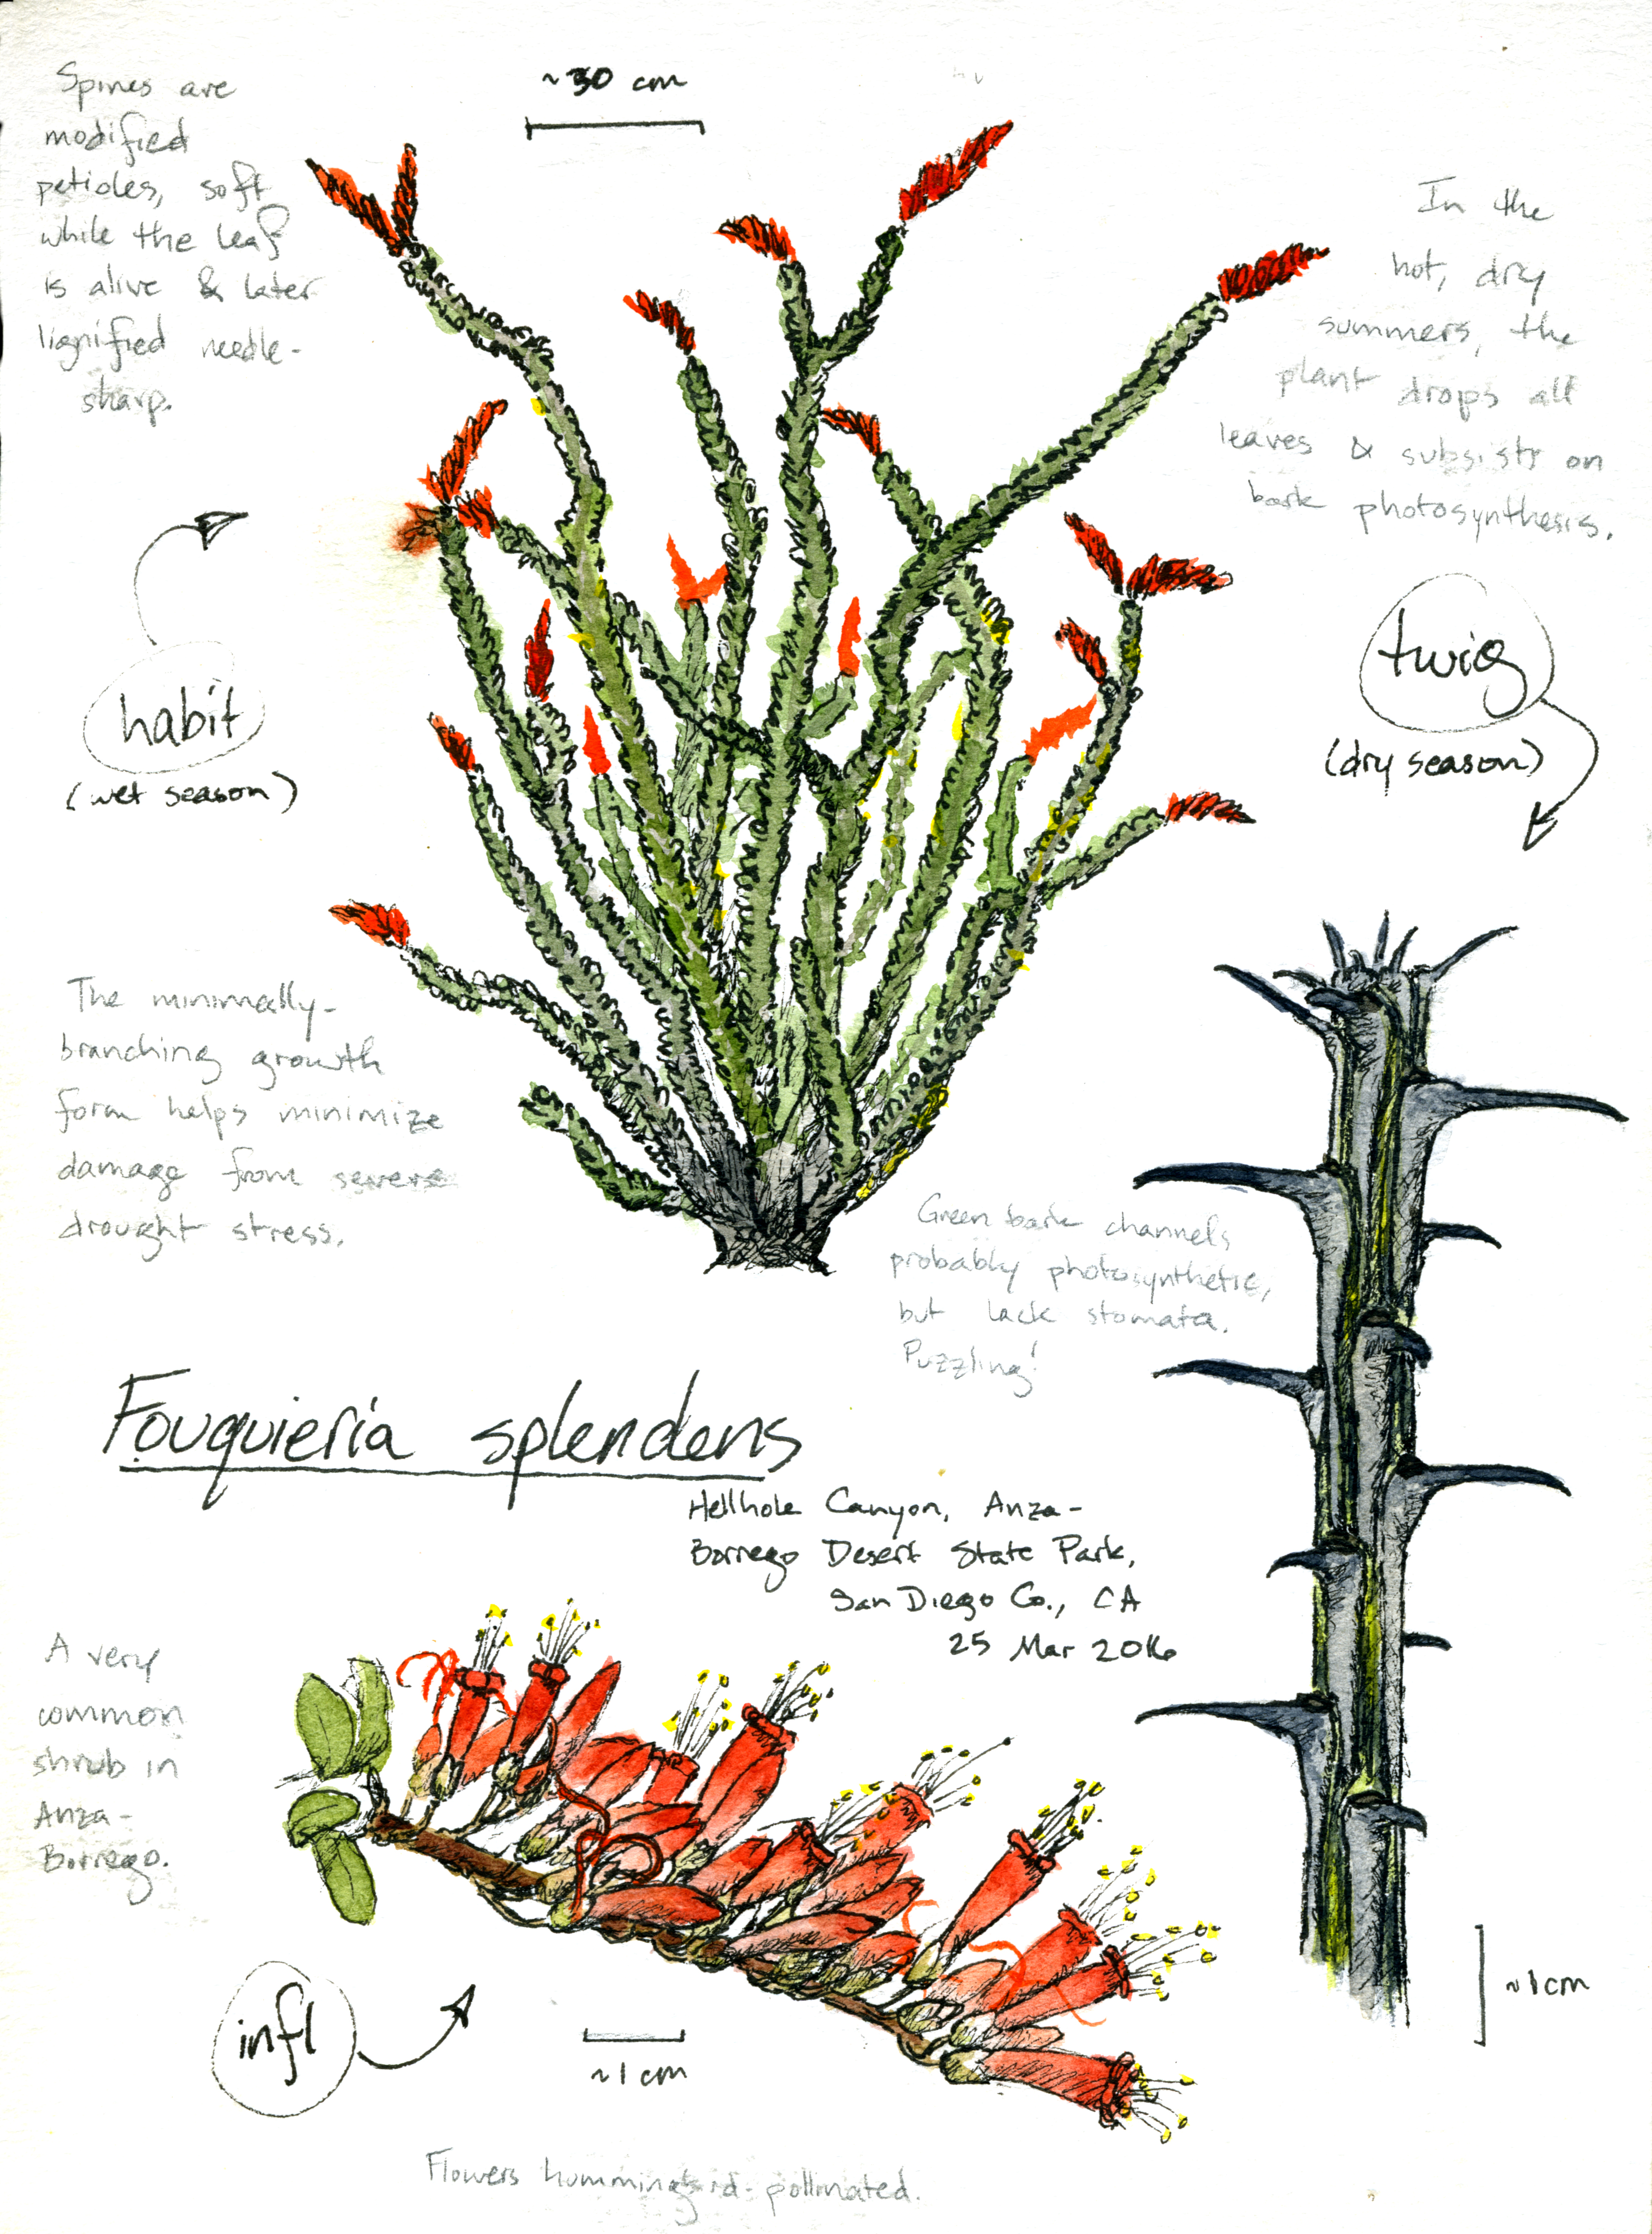 Spines are
modified
petioles, soft
while the leaf
is alive & later
lignified needle-
sharp.
~30 cm
In the
hot, dry
summers, the
plant drops all
leaves & subsists on
bark photosynthesis.
habit
(wet season)
twig
(dry season)
The minimally-
branching growth
form helps minimize
damage from severe
drought stress.
Green bark channels
probably photosynthetic,
but lack stomata.
Puzzling!
Fouquieria splendens
Hellhole Canyon, Anza-
Borrego Desert State Park,
San Diego Co., CA
25 Mar 2016
A very
common
shrub in
Anza-
Borrego.
infl
~1 cm
~1 cm
Flowers hummingbird-pollinated.